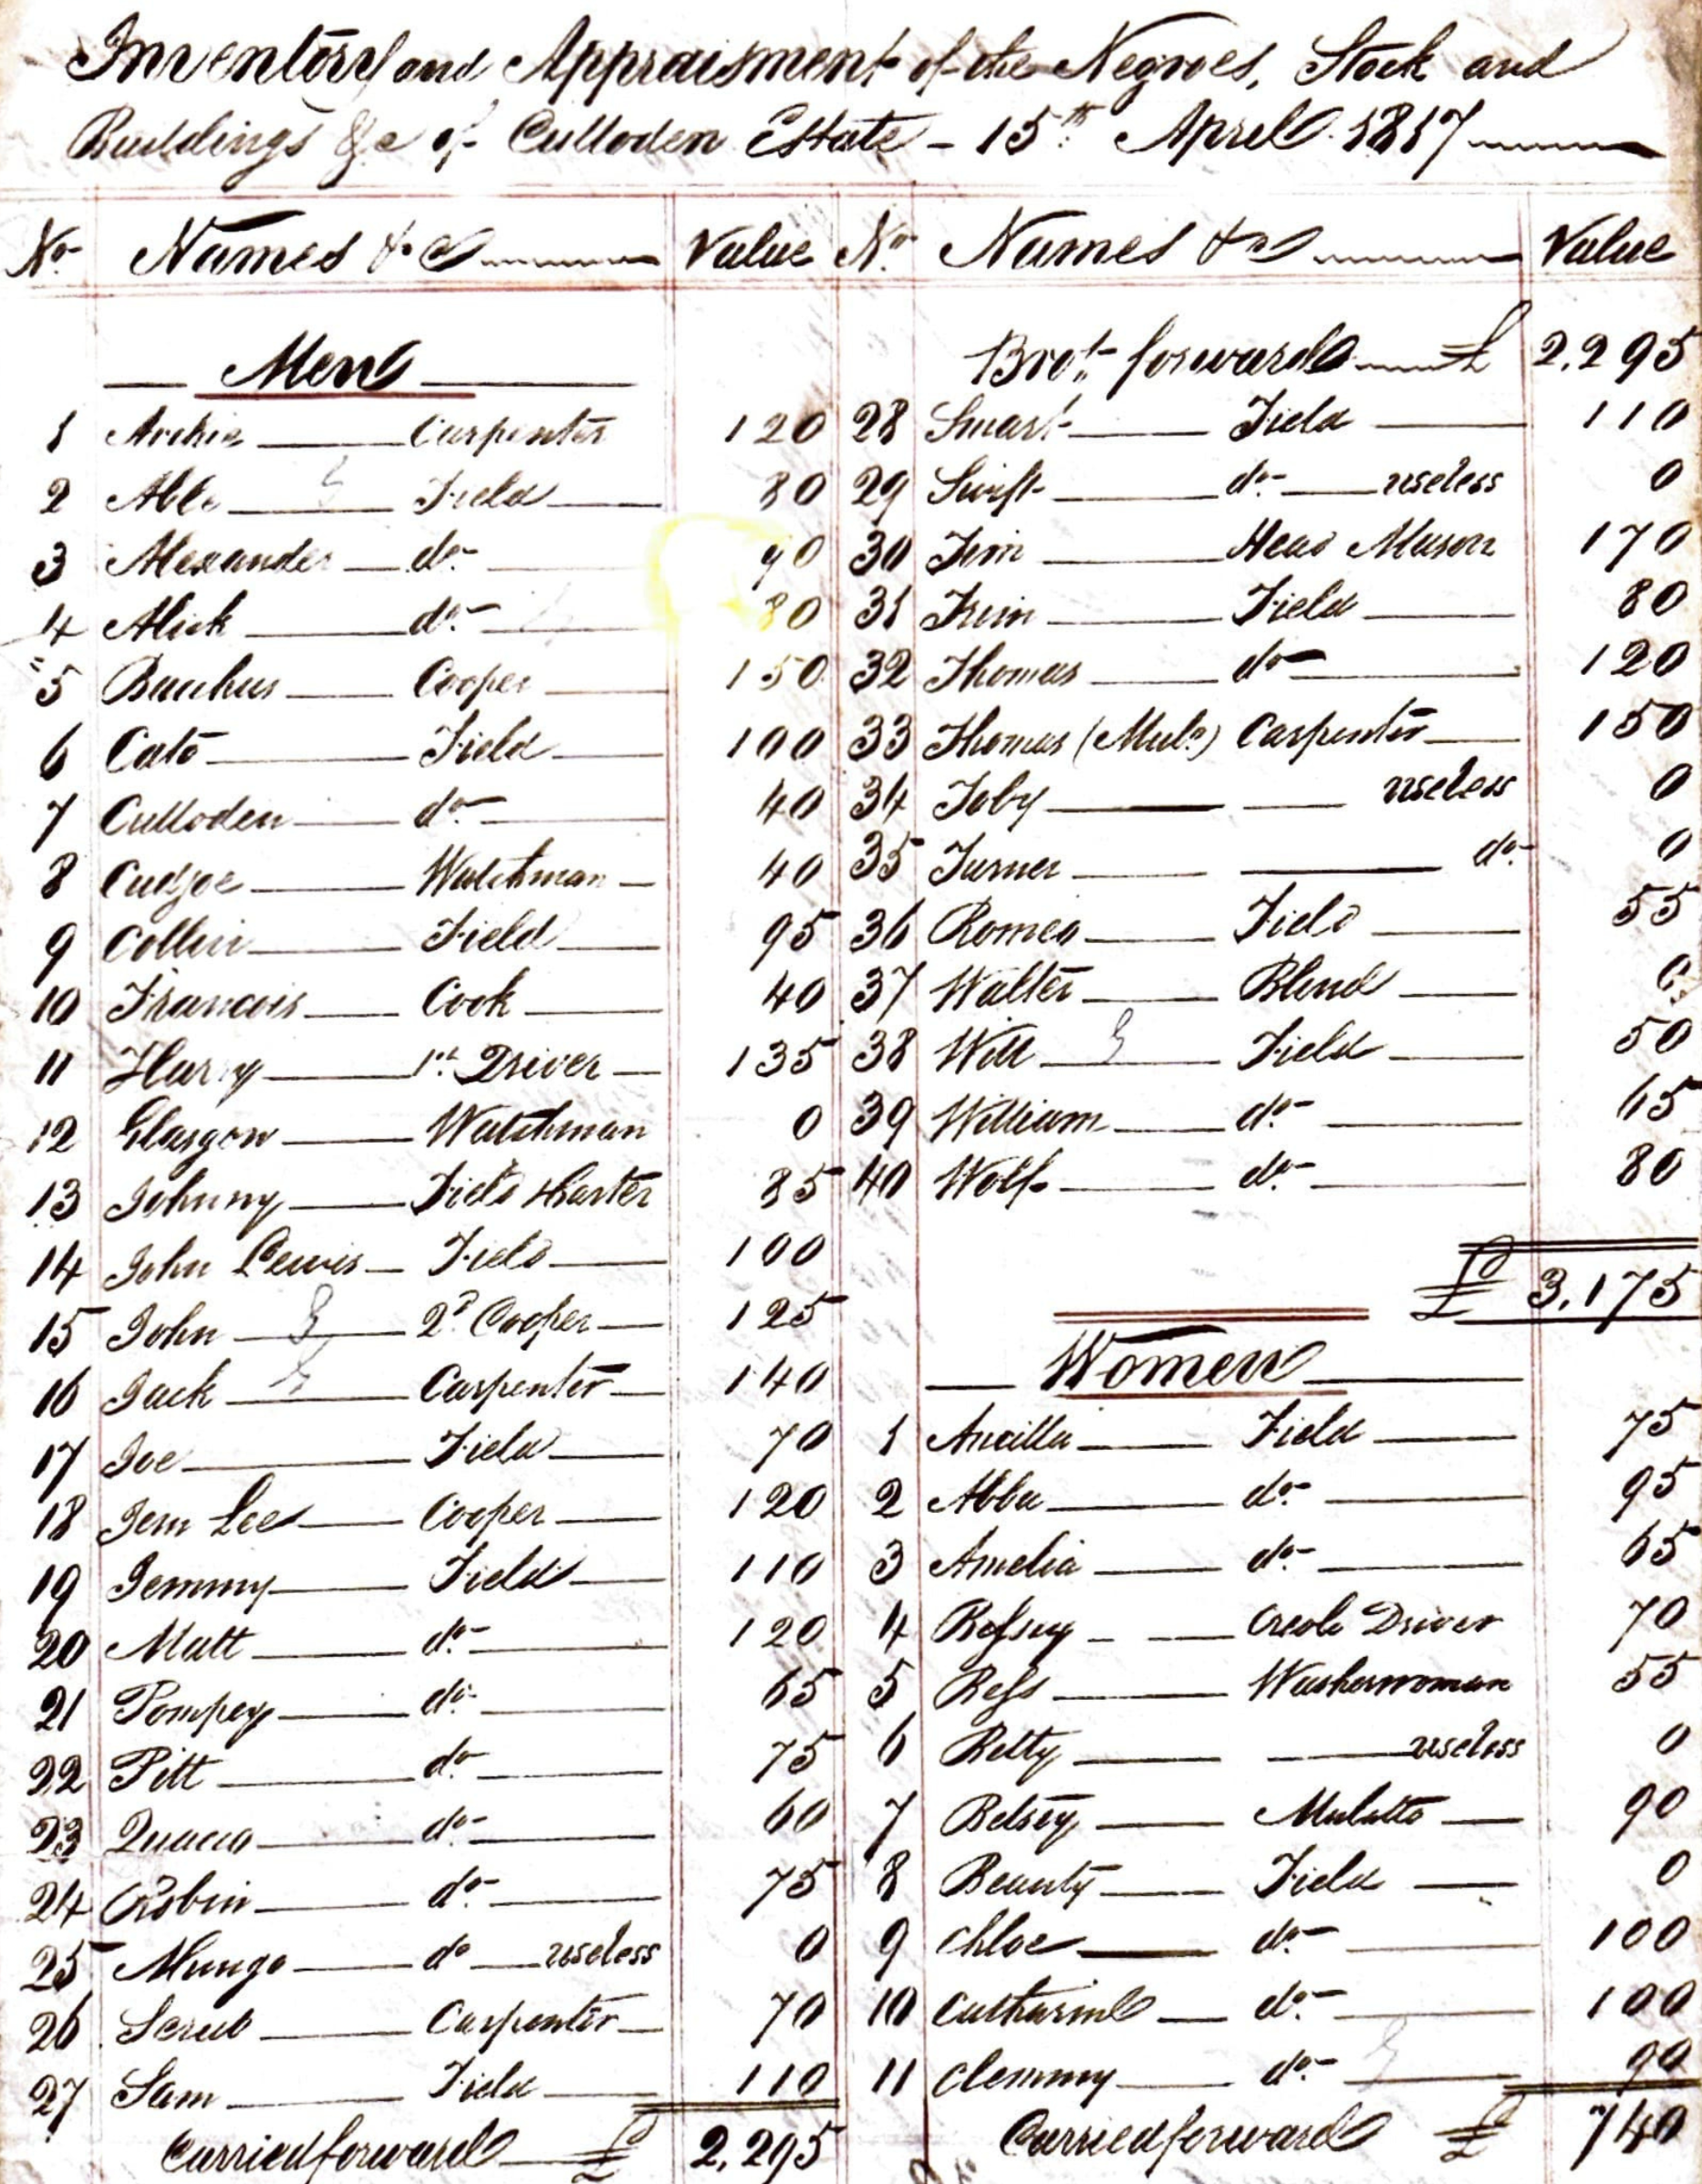 Inventory and Appraisment of the Negroes, Stock and
Buildings &c of Culloden Estate - 15th April 1817
No. Names &c Value
Men
1 Archie Carpenter 120
2 Able Field 80
3 Alexander do. 90
4 Alick do. 80
5 Bacchus Cooper 150
6 Cato Field 100
7 Culloden do. 40
8 Cudjoe Watchman 40
9 Collin Field 95
10 Francois Cook 40
11 Harry 1st Driver 135
12 Glasgow Watchman 0
13 Johnny Field & Carter 85
14 John Lewis Field 100
15 John 2d Cooper 125
16 Jack Carpenter 140
17 Joe Field 70
18 Jem Lee Cooper 120
19 Jemmy Field 110
20 Matt do. 120
21 Pompey do. 65
22 Pitt do. 75
23 Quaco do. 60
24 Robin do. 75
25 Mungo do useless 0
26 Scrub Carpenter 70
27 Sam Field 110
Carried forward £ 2,295
No. Names &c Value
Brot. forward £ 2,295
28 Smart Field 110
29 Swift do. useless 0
30 Jim Head Mason 170
31 Trim Field 80
32 Thomas do 120
33 Thomas (Mulo) Carpenter 150
34 Toby useless 0
35 Turner do. 0
36 Romeo Field 55
37 Walter Blind 0
38 Will Field 50
39 William do. 65
40 Wolf do. 80
£ 3,175
Women
1 Ancilla Field 75
2 Abba do. 95
3 Amelia do. 65
4 Bessey Creole Driver 70
5 Bess Washerwoman 55
6 Betty useless 0
7 Betsey Mulatto 90
8 Beauty Field 0
9 Chloe do. 100
10 Catharine do. 100
11 Clemmy do. 90
Carried forward £ 740